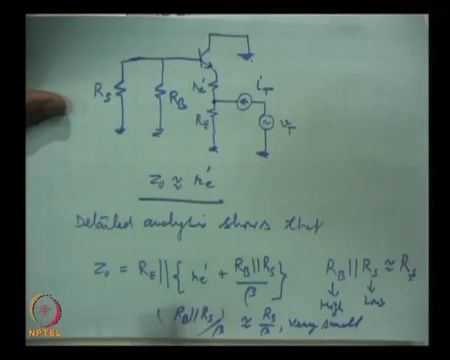 R_S
R_B
r_e'
i_T
R_E
v_T
z_0 ≈ r_e'
Detailed analysis shows that
z_0 = R_E || { r_e' + R_B||R_S / β }
R_B || R_S ≈ R_S
High Low
( R_B||R_S )/β ≈ R_S/β , very small
NPTEL